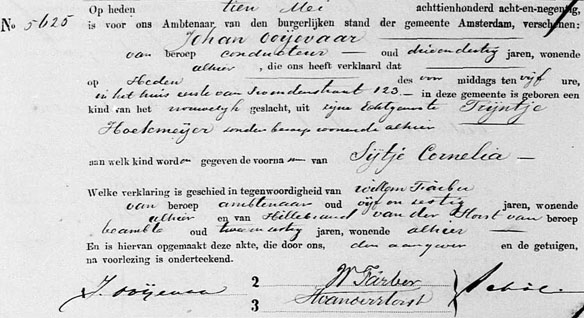 Op heden tien Mei achttienhonderd acht-en-negentig,
No 5625 is voor ons Ambtenaar van den burgerlijken stand der gemeente Amsterdam, verschenen:
Johan Ooijevaar
van beroep conducteur — oud drie en dertig jaren, wonende
alhier, die ons heeft verklaard dat
op Heden — des voor middags ten vijf ure,
in het huis eerste van Swindenstraat 123 — in deze gemeente is geboren een
kind van het vrouwelijk geslacht, uit zijne Echtgenoote Trijntje
Hoekmeijer zonder beroep wonende alhier
aan welk kind worden gegeven de voorna en van Sijtje Cornelia —
Welke verklaring is geschied in tegenwoordigheid van Willem Färber
van beroep ambtenaar oud vijf en sestig jaren, wonende
alhier en van Hillebrand van der Horst van beroep
beambte oud twee en sestig jaren, wonende alhier —
En is hiervan opgemaakt deze akte, die door ons, den aangever en de getuigen,
na voorlezing is onderteekend.
J. Ooijevaar 2 W Färber
3 Hvanderhorst